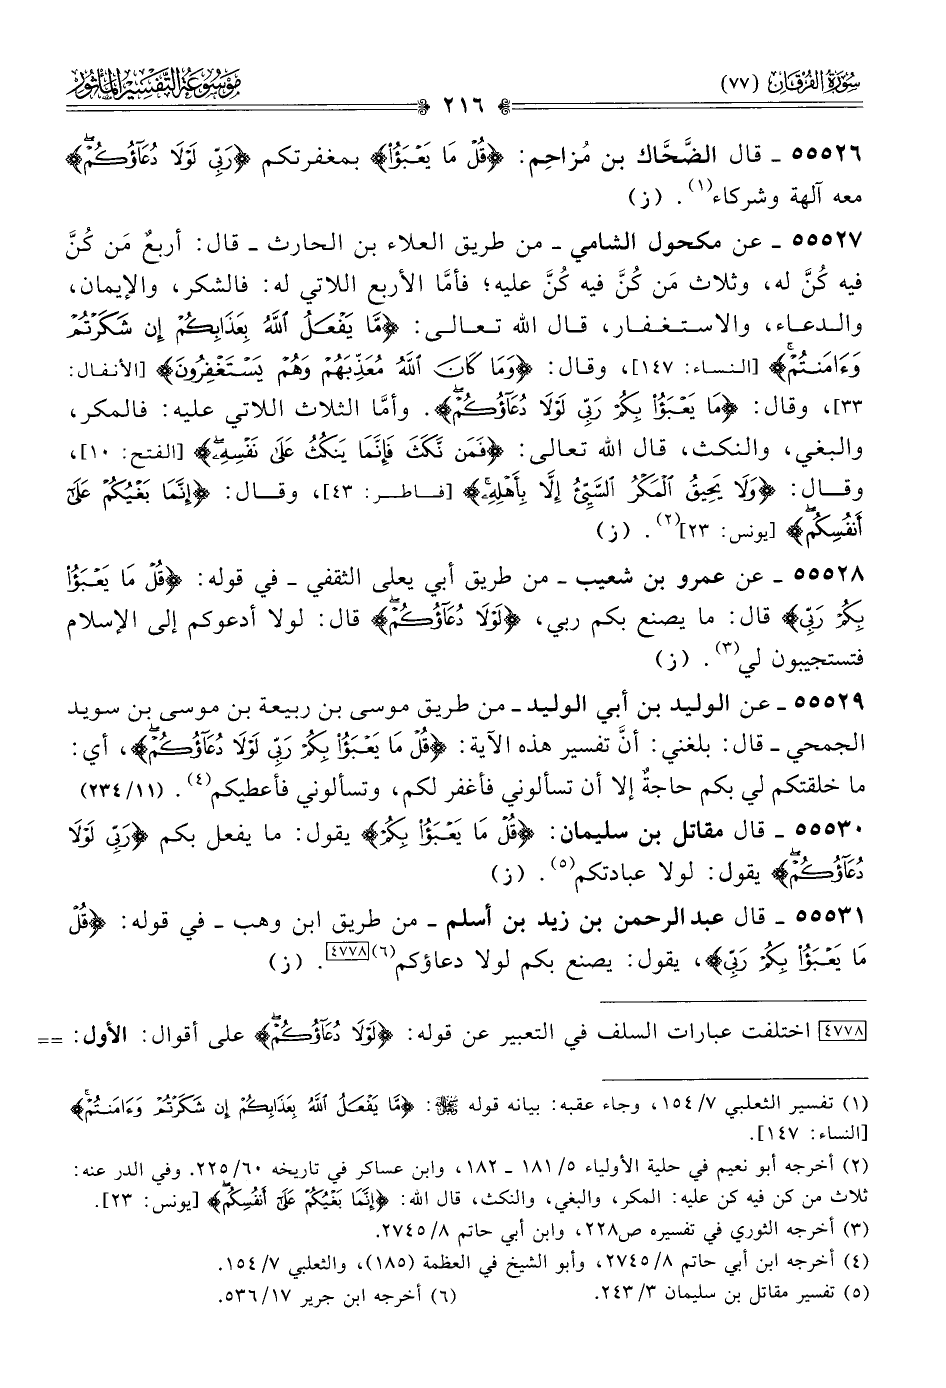 سُورَةُ الفُرْقَان (٧٧)
مَوْسُوعَة التَّفْسِيرِ المَأْثُور
٢١٦
٥٥٥٢٦ ـ قال الضَّحَّاك بن مُزاحِم: ﴿قُلْ مَا يَعْبَؤُا۟﴾ بمغفرتكم ﴿رَبِّى لَوْلَا دُعَآؤُكُمْۖ﴾
معه آلهة وشركاء(١). (ز)
٥٥٥٢٧ ـ عن مكحول الشامي ـ من طريق العلاء بن الحارث ـ قال: أربعٌ مَن كُنَّ
فيه كُنَّ له، وثلاث مَن كُنَّ فيه كُنَّ عليه؛ فأمَّا الأربع اللاتي له: فالشكر، والإيمان،
والدعاء، والاستغفار، قال الله تعالى: ﴿مَّا يَفْعَلُ ٱللَّهُ بِعَذَابِكُمْ إِن شَكَرْتُمْ
وَءَامَنتُمْۚ﴾ [النساء: ١٤٧]، وقال: ﴿وَمَا كَانَ ٱللَّهُ مُعَذِّبَهُمْ وَهُمْ يَسْتَغْفِرُونَ﴾ [الأنفال:
٣٣]، وقال: ﴿مَا يَعْبَؤُا۟ بِكُمْ رَبِّى لَوْلَا دُعَآؤُكُمْۖ﴾. وأمَّا الثلاث اللاتي عليه: فالمكر،
والبغي، والنكث، قال الله تعالى: ﴿فَمَن نَّكَثَ فَإِنَّمَا يَنكُثُ عَلَىٰ نَفْسِهِۦۖ﴾ [الفتح: ١٠]،
وقال: ﴿وَلَا يَحِيقُ ٱلْمَكْرُ ٱلسَّيِّئُ إِلَّا بِأَهْلِهِۦۚ﴾ [فاطر: ٤٣]، وقال: ﴿إِنَّمَا بَغْيُكُمْ عَلَىٰٓ
أَنفُسِكُمۖ﴾ [يونس: ٢٣](٢). (ز)
٥٥٥٢٨ ـ عن عمرو بن شعيب ـ من طريق أبي يعلى الثقفي ـ في قوله: ﴿قُلْ مَا يَعْبَؤُا۟
بِكُمْ رَبِّى﴾ قال: ما يصنع بكم ربي، ﴿لَوْلَا دُعَآؤُكُمْۖ﴾ قال: لولا أدعوكم إلى الإسلام
فتستجيبون لي(٣). (ز)
٥٥٥٢٩ ـ عن الوليد بن أبي الوليد ـ من طريق موسى بن ربيعة بن موسى بن سويد
الجمحي ـ قال: بلغني: أنَّ تفسير هذه الآية: ﴿قُلْ مَا يَعْبَؤُا۟ بِكُمْ رَبِّى لَوْلَا دُعَآؤُكُمْۖ﴾، أي:
ما خلقتكم لي بكم حاجةٌ إلا أن تسألوني فأغفر لكم، وتسألوني فأعطيكم(٤). (١١/٢٣٤)
٥٥٥٣٠ ـ قال مقاتل بن سليمان: ﴿قُلْ مَا يَعْبَؤُا۟ بِكُمْ﴾ يقول: ما يفعل بكم ﴿رَبِّى لَوْلَا
دُعَآؤُكُمْۖ﴾ يقول: لولا عبادتكم(٥). (ز)
٥٥٥٣١ ـ قال عبد الرحمن بن زيد بن أسلم ـ من طريق ابن وهب ـ في قوله: ﴿قُلْ
مَا يَعْبَؤُا۟ بِكُمْ رَبِّى﴾، يقول: يصنع بكم لولا دعاؤكم(٦)[٤٧٧٨]. (ز)
[٤٧٧٨] اختلفت عبارات السلف في التعبير عن قوله: ﴿لَوْلَا دُعَآؤُكُمْۖ﴾ على أقوال: الأول: ==
(١) تفسير الثعلبي ٧/ ١٥٤، وجاء عقبه: بيانه قوله ﷺ: ﴿مَّا يَفْعَلُ ٱللَّهُ بِعَذَابِكُمْ إِن شَكَرْتُمْ وَءَامَنتُمْۚ﴾
[النساء: ١٤٧].
(٢) أخرجه أبو نعيم في حلية الأولياء ٥/ ١٨١ ـ ١٨٢، وابن عساكر في تاريخه ٦٠/ ٢٢٥. وفي الدر عنه:
ثلاث من كن فيه كن عليه: المكر، والبغي، والنكث، قال الله: ﴿إِنَّمَا بَغْيُكُمْ عَلَىٰٓ أَنفُسِكُمۖ﴾ [يونس: ٢٣].
(٣) أخرجه الثوري في تفسيره ص٢٢٨، وابن أبي حاتم ٨/ ٢٧٤٥.
(٤) أخرجه ابن أبي حاتم ٨/ ٢٧٤٥، وأبو الشيخ في العظمة (١٨٥)، والثعلبي ٧/ ١٥٤.
(٥) تفسير مقاتل بن سليمان ٣/ ٢٤٣. (٦) أخرجه ابن جرير ١٧/ ٥٣٦.